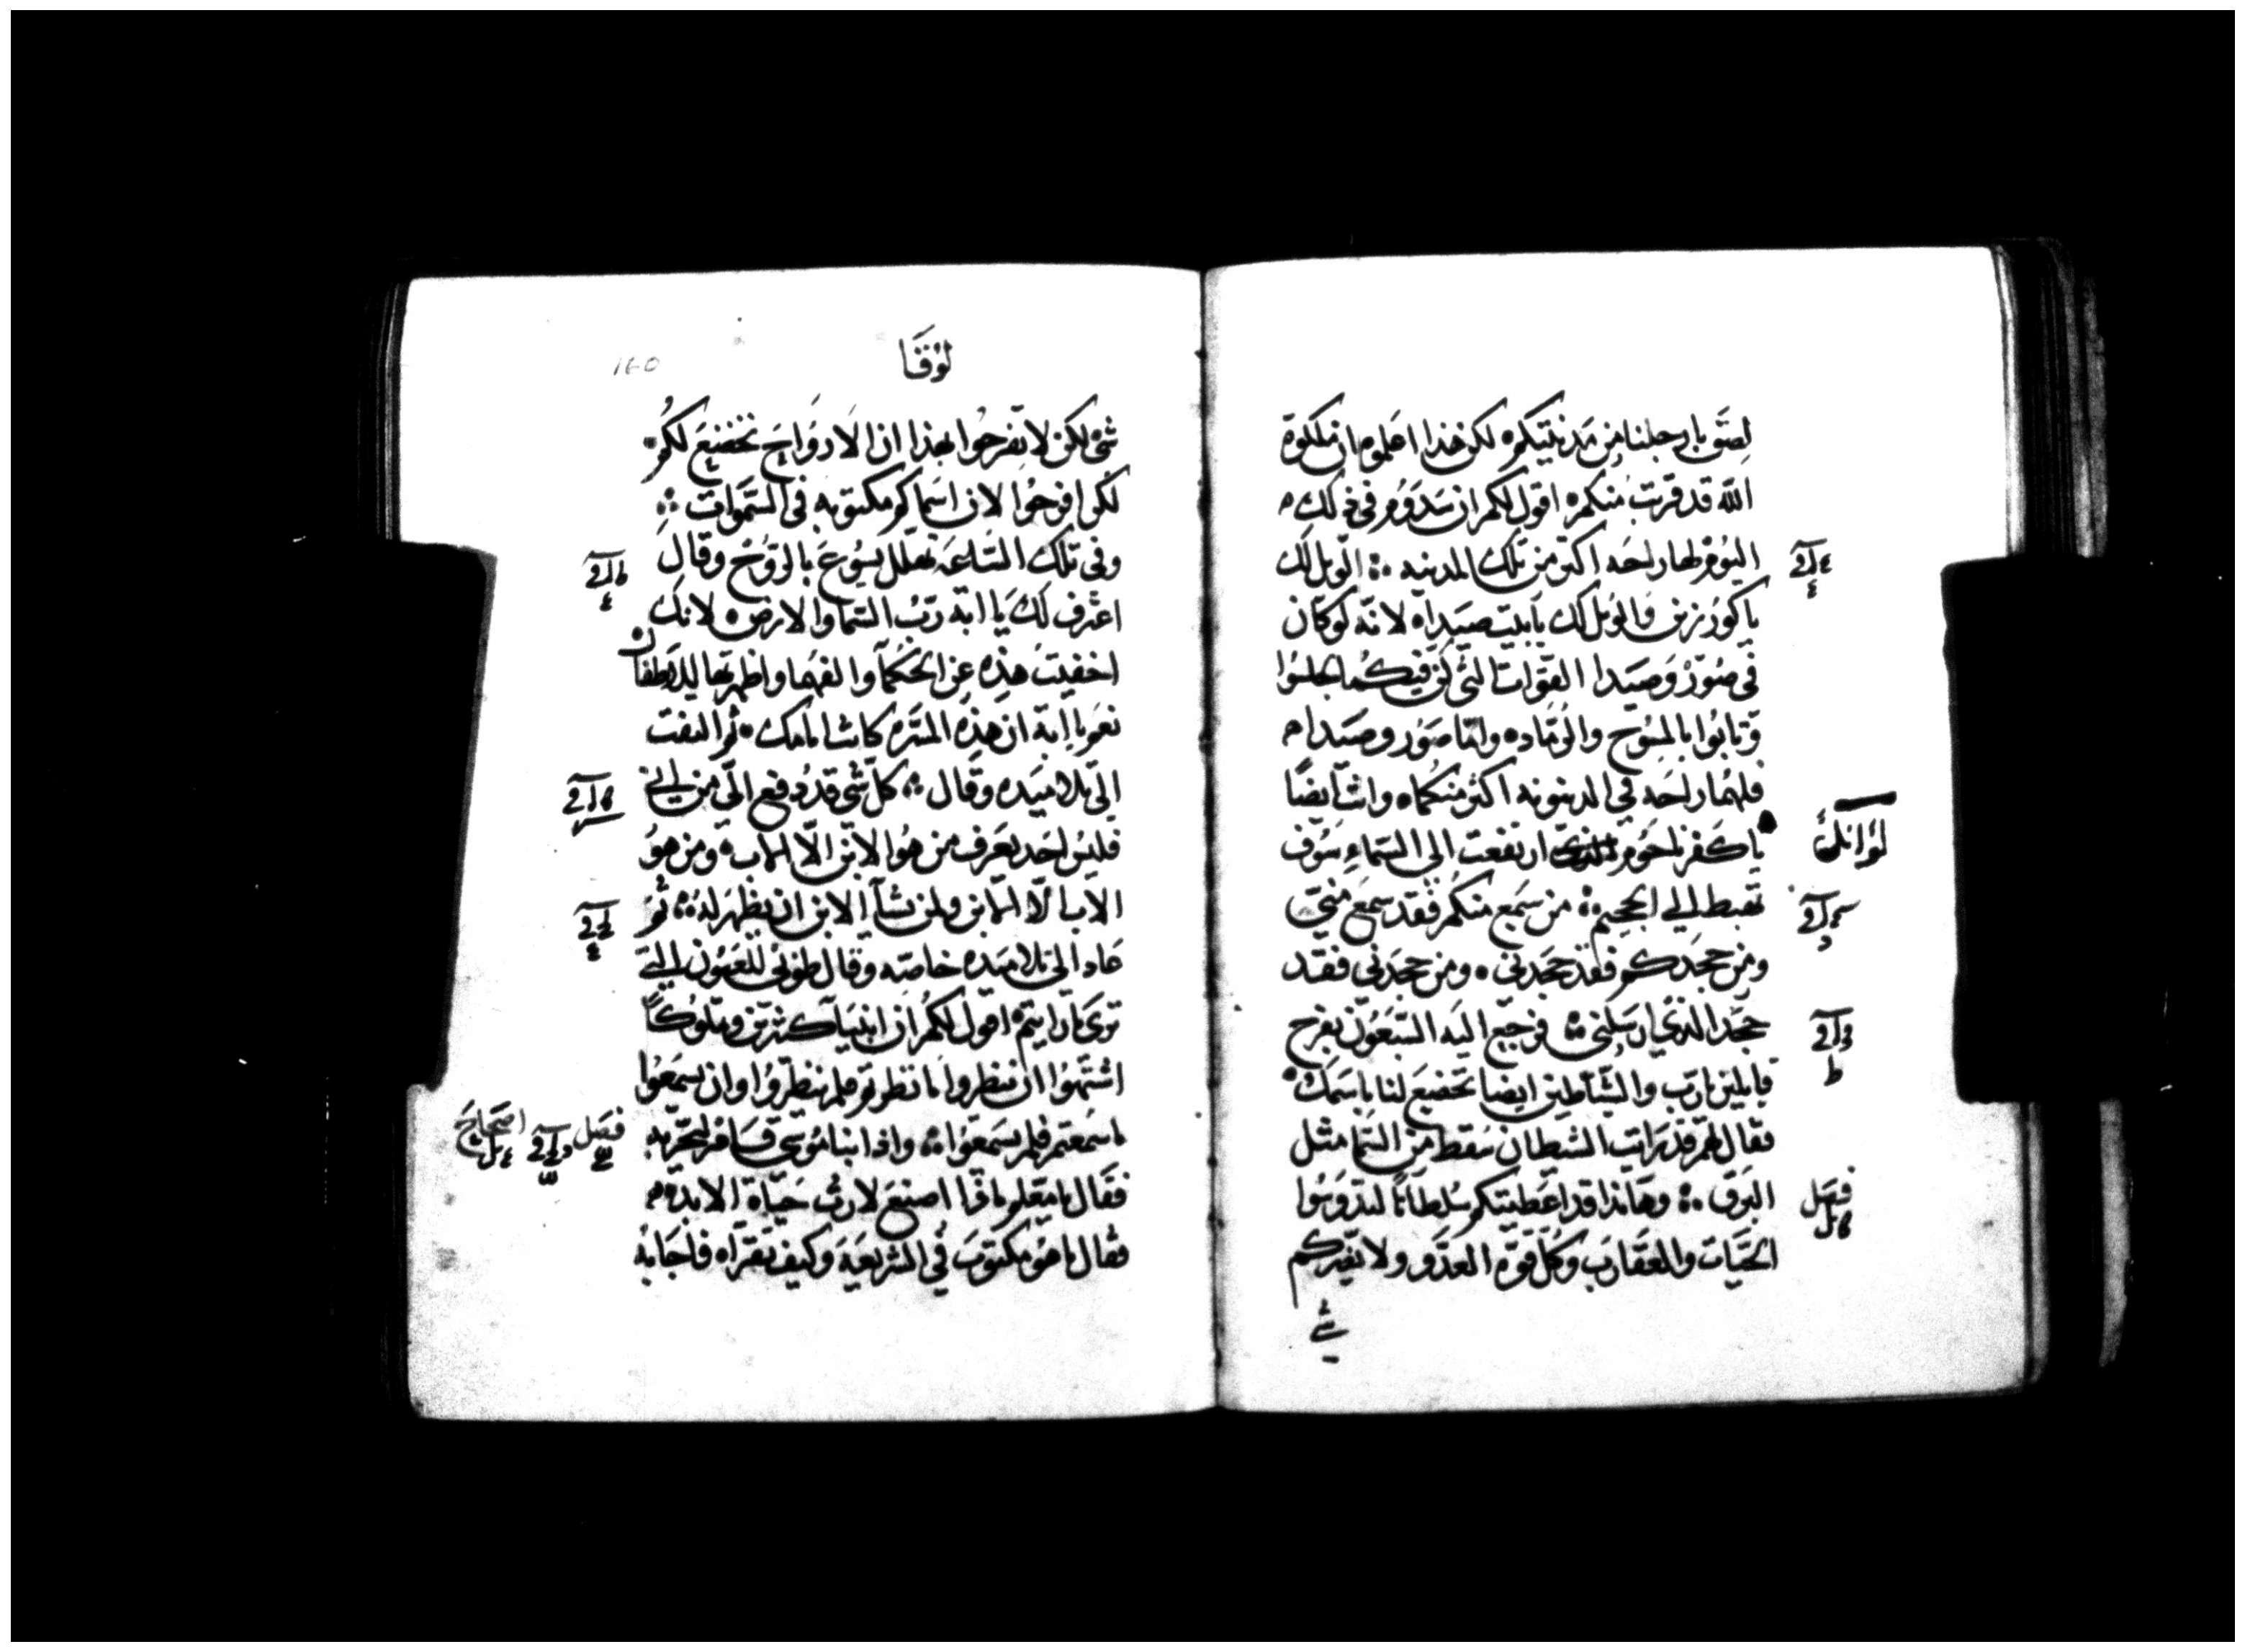 لصق بارجلنا من مدينتيكم لكن هذا اعلموه ان ملكوة
الله قد قربت منكم اقول لكم ان سدوم في ذلك
اليوم لها راحه اكثر من تلك المدينه الويل لك
يا كورزين والويل لك يا بيت صيدا لانه لو كان
في صور وصيدا القوات التي كن فيكما لجلسوا
وتابوا بالمسوح والرماده واما صور وصيدا
فلهما راحه في الدينونه اكثر منكما وانت ايضا
يا كفرناحوم ارتفعت الى السماء سوف
تهبط الى الجحيم من سمع منكم فقد سمع مني
ومن جحدكم فقد جحدني ومن جحدني فقد
جحد الذي ارسلني فرجع اليه السبعون بفرح
قايلين يا رب والشياطين ايضا تخضع لنا باسمك
فقال لهم قد رايت الشيطان سقط من السما مثل
البرق وهانذا قد اعطيتكم سلطانا لتدوسوا
الحيات والعقارب وكل قوه العدو ولا يضركم
شي
لو انك
فصل
لوقا
160
شي لكن لا تفرحوا بهذا ان الارواح تخضع لكم
لكن افرحوا لان اسماكم مكتوبه في السموات
وفي تلك الساعه تهلل يسوع بالروح وقال
اعترف لك يا ابة رب السما والارض لانك
اخفيت هذه عن الحكما والفهما واظهرتها للاطفال
نعم يا ابة ان هذه المسره كانت امامك ثم التفت
الى تلاميذه وقال كل شي قد دفع الي من ابي
فليس احد يعرف من هو الابن الا الاب ومن هو
الاب الا الابن ولمن يشا الابن ان يظهر له ثم
عاد الى تلاميذه خاصه وقال طوبى للعيون التي
ترى ما رايتم اقول لكم ان انبيا كثيرين وملوكا
اشتهوا ان ينظروا ما نظرتم فلم ينظروا وان يسمعوا
ما سمعتم فلم يسمعوا واذا بناموسي قام ليجربه
فقال يا معلم ماذا اصنع لارث حياة الابد
فقال ما هو مكتوب في الشريعه وكيف تقراه فاجابه
فصل
اصحاح